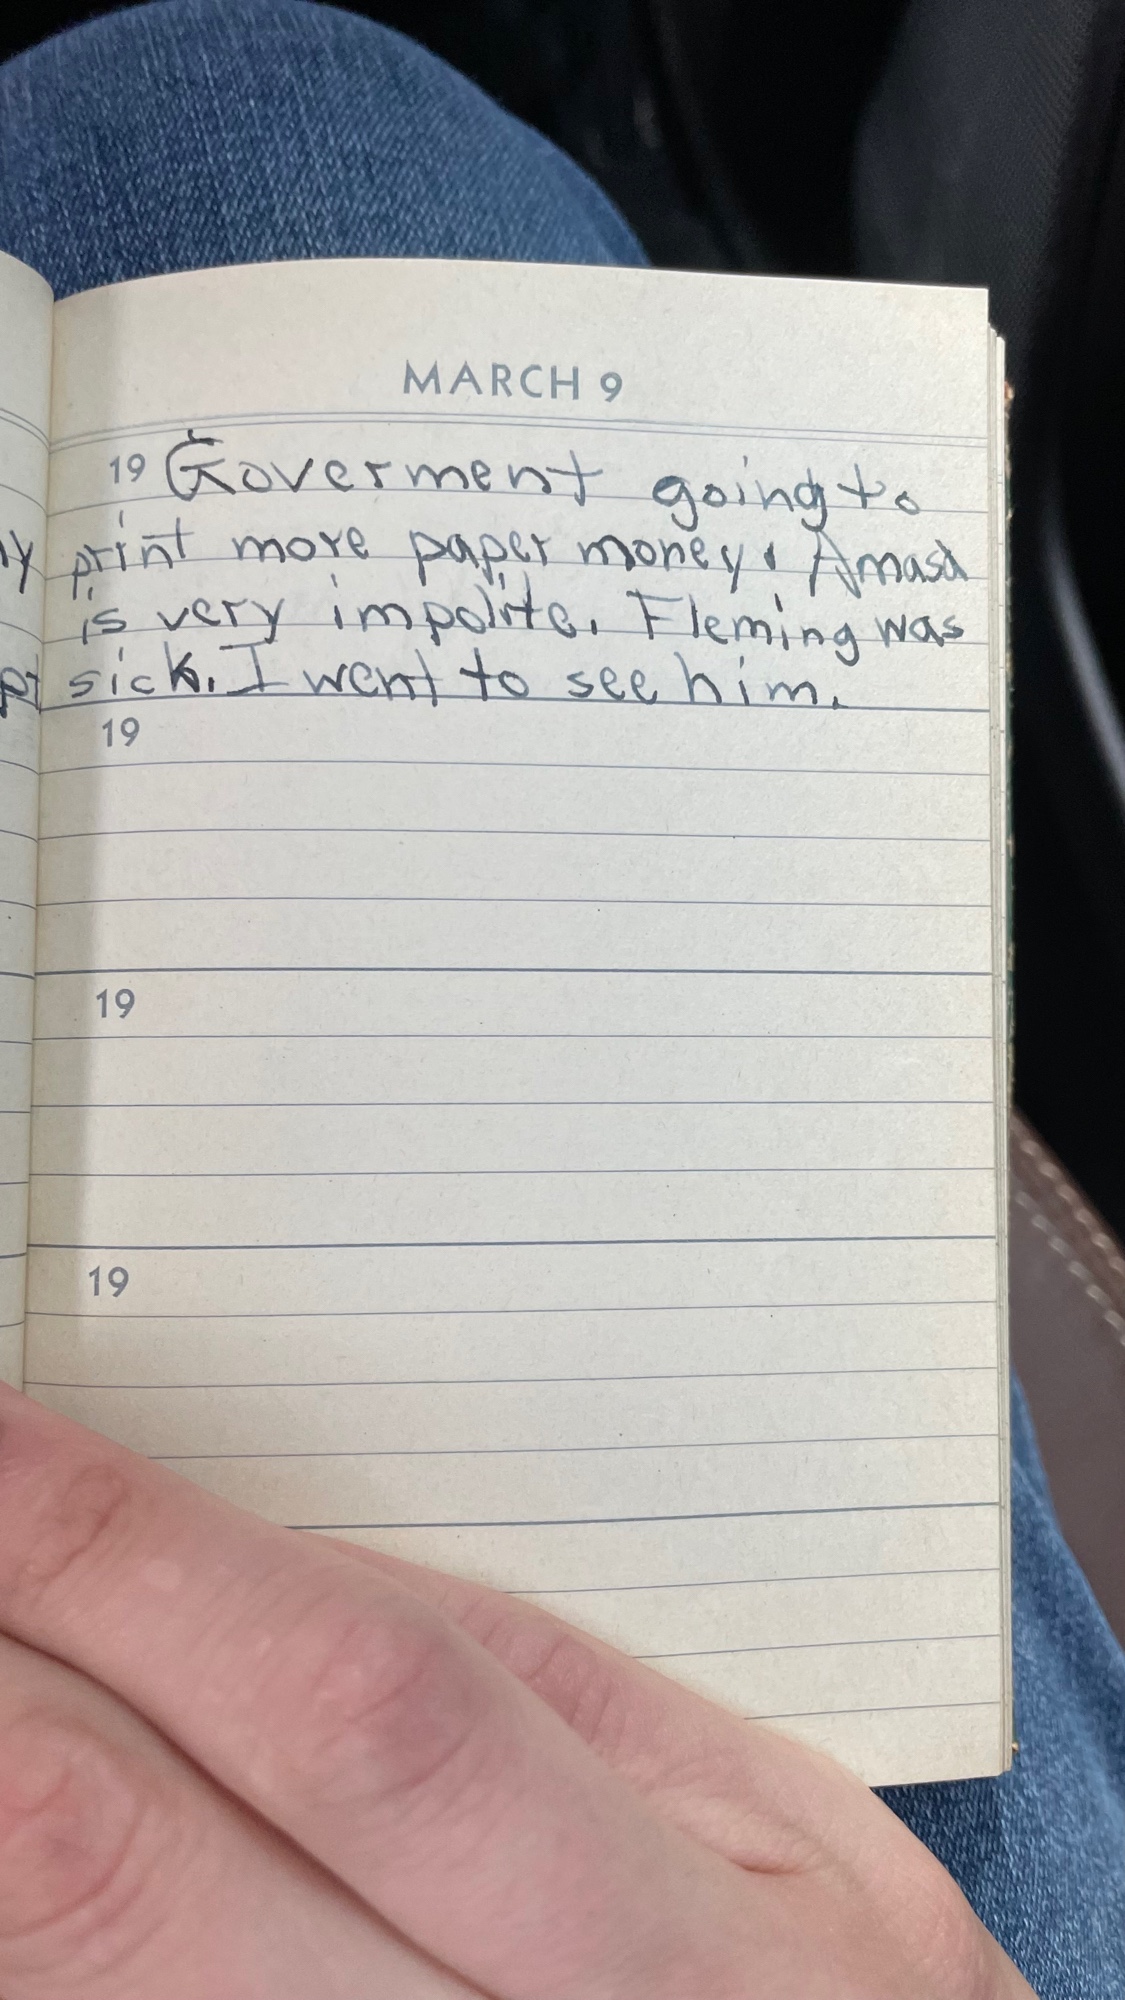 MARCH 9
19 Goverment going to
ny print more paper money. Amasa
is very impolite. Fleming was
pt sick. I went to see him.
19
19
19